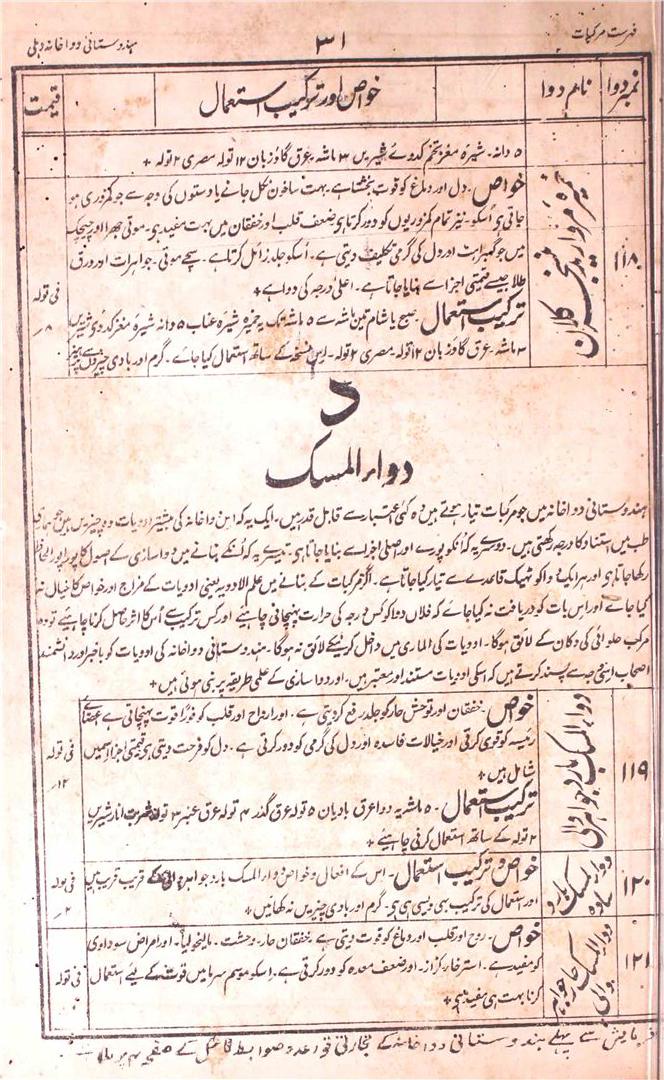 فہرست مرکبات
۳۱
ہندوستانی دواخانہ دہلی
نمبر دوا
نام دوا
خواص اور ترکیب استعمال
قیمت
۵ دانہ۔ شیرہ مغز تخم کدوئے شیریں ۳ ماشہ۔ عرق گاؤزبان ۱۲ تولہ مصری ۲ تولہ +
۱۱۸
خمیرہ مروارید بنسخہ کلاں
خواص۔ دل اور دماغ کو قوت بخشتا ہے۔ بہت سا خون نکل جانے یا دستوں کی وجہ سے جو کمزوری ہو
جاتی ہے اسکو۔ نیز تمام کمزوریوں کو دور کرتا ہے ضعف قلب اور خفقان میں بہت مفید ہے۔ موتی جھرا اور چیچک
میں جو گھبراہٹ اور دل کی گرمی تکلیف دیتی ہے۔ اسکو جلد زائل کرتا ہے۔ سچے موتی۔ جواہرات اور ورق
طلا جیسے قیمتی اجزا سے بنایا جاتا ہے۔ اعلیٰ درجہ کی دوا ہے +
ترکیب استعمال۔ صبح یا شام تین ماشہ سے ۵ ماشہ تک یہ خمیرہ شیرہ عناب ۵ دانہ شیرہ مغز کدوی شیریں
۳ ماشہ۔ عرق گاؤزبان ۱۲ تولہ۔ مصری ۲ تولہ۔ اس نسخہ کے ساتھ استعمال کیا جائے۔ گرم اور بادی چیزوں سے پرہیز
فی تولہ
۸؍
د
دواء المسک
ہندوستانی دواخانہ میں جو مرکبات تیار ہوتے ہیں وہ کئی اعتبار سے قابل قدر ہیں۔ ایک یہ کہ اس دواخانہ کی بیشتر ادویات وہ چیزیں ہیں جو ہماری
طب میں استناد کا درجہ رکھتی ہیں۔ دوسرے یہ کہ انکو پورے اور اصلی اجزا سے بنایا جاتا ہے۔ تیسرے یہ کہ انکے بنانے میں دواسازی کے اصول کا پورا پورا لحاظ
رکھا جاتا ہے اور ہر ایک دوا کو ٹھیک قاعدے سے تیار کیا جاتا ہے۔ اگر مرکبات کے بنانے میں علم الادویہ یعنی ادویات کے مزاج اور خواص کا خیال نہ
کیا جائے اور اس بات کو دریافت نہ کیا جائے کہ فلاں دوا کو کس درجہ کی حرارت پہنچانی چاہیئے اور کس ترکیب سے اُس کا اثر حاصل کرنا چاہیئے تو وہ
مرکب حلوائی کی دکان کے لائق ہوگا۔ ادویات کی الماری میں داخل کرنیکے لائق نہ ہوگا۔ ہندوستانی دواخانہ کی ادویات کو باخبر اور دانشمند
اصحاب اسی وجہ سے پسند کرتے ہیں کہ اسکی ادویات مستند اور معتبر ہیں۔ اور دواسازی کے علمی طریقہ پر بنی ہوئی ہیں +
۱۱۹
دواء المسک بارد جواہر والی
خواص۔ خفقان اور توحش حار کو جلد رفع کر دیتی ہے۔ اور ارواح اور قلب کو فوراً قوت پہنچاتی ہے اعضائے
رئیسہ کو قوی کرتی اور خیالات فاسدہ اور دل کی گرمی کو دور کرتی ہے۔ دل کو فرحت دیتی ہے قیمتی اجزا اسمیں
شامل ہیں +
ترکیب استعمال۔ ۵ ماشہ یہ دوا عرق بادیان ۵ تولہ عرق گذر ۴ تولہ عرق عنبر ۳ تولہ شربت انار شیریں
۲ تولہ کے ساتھ استعمال کرنی چاہیئے +
فی تولہ
۱۲؍
۱۲۰
دواء المسک بارد سادہ
خواص و ترکیب استعمال۔ اس کے افعال و خواص دواء المسک بارد جواہر والی کے قریب قریب ہیں
اور استعمال کی ترکیب بھی ویسی ہی ہے۔ گرم اور بادی چیزیں نہ کھائیں +
فی تولہ
۲؍
۱۲۱
دواء المسک حار جواہر والی
خواص۔ روح اور قلب اور دماغ کو قوت دیتی ہے۔ خفقان حار۔ وحشت۔ مالیخولیا۔ اور امراض سوداوی
کو مفید ہے۔ استرخا۔ کزاز۔ اور ضعف معدہ کو دور کرتی ہے۔ اسکو موسم سرما میں قوت کے لیے استعمال
کرنا بہت ہی مفید ہے +
فی تولہ
فرمایش سے پہلے ہندوستانی دواخانہ کے تجارتی قواعد و ضوابط ٹائٹل کے صفحہ